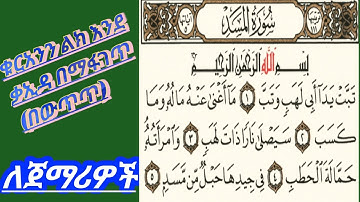 ቁርአንን ልክ እንደ
ቃኢዳ በማፋገጥ
(በውጥጥ)
ለጀማሪዎች
سُورَةُ الْمَسَدِ
بِسْمِ اللَّهِ الرَّحْمَٰنِ الرَّحِيمِ
تَبَّتْ يَدَا أَبِي لَهَبٍ وَتَبَّ ١ مَا أَغْنَىٰ عَنْهُ مَالُهُ وَمَا
كَسَبَ ٢ سَيَصْلَىٰ نَارًا ذَاتَ لَهَبٍ ٣ وَامْرَأَتُهُ
حَمَّالَةَ الْحَطَبِ ٤ فِي جِيدِهَا حَبْلٌ مِّن مَّسَدٍ ٥